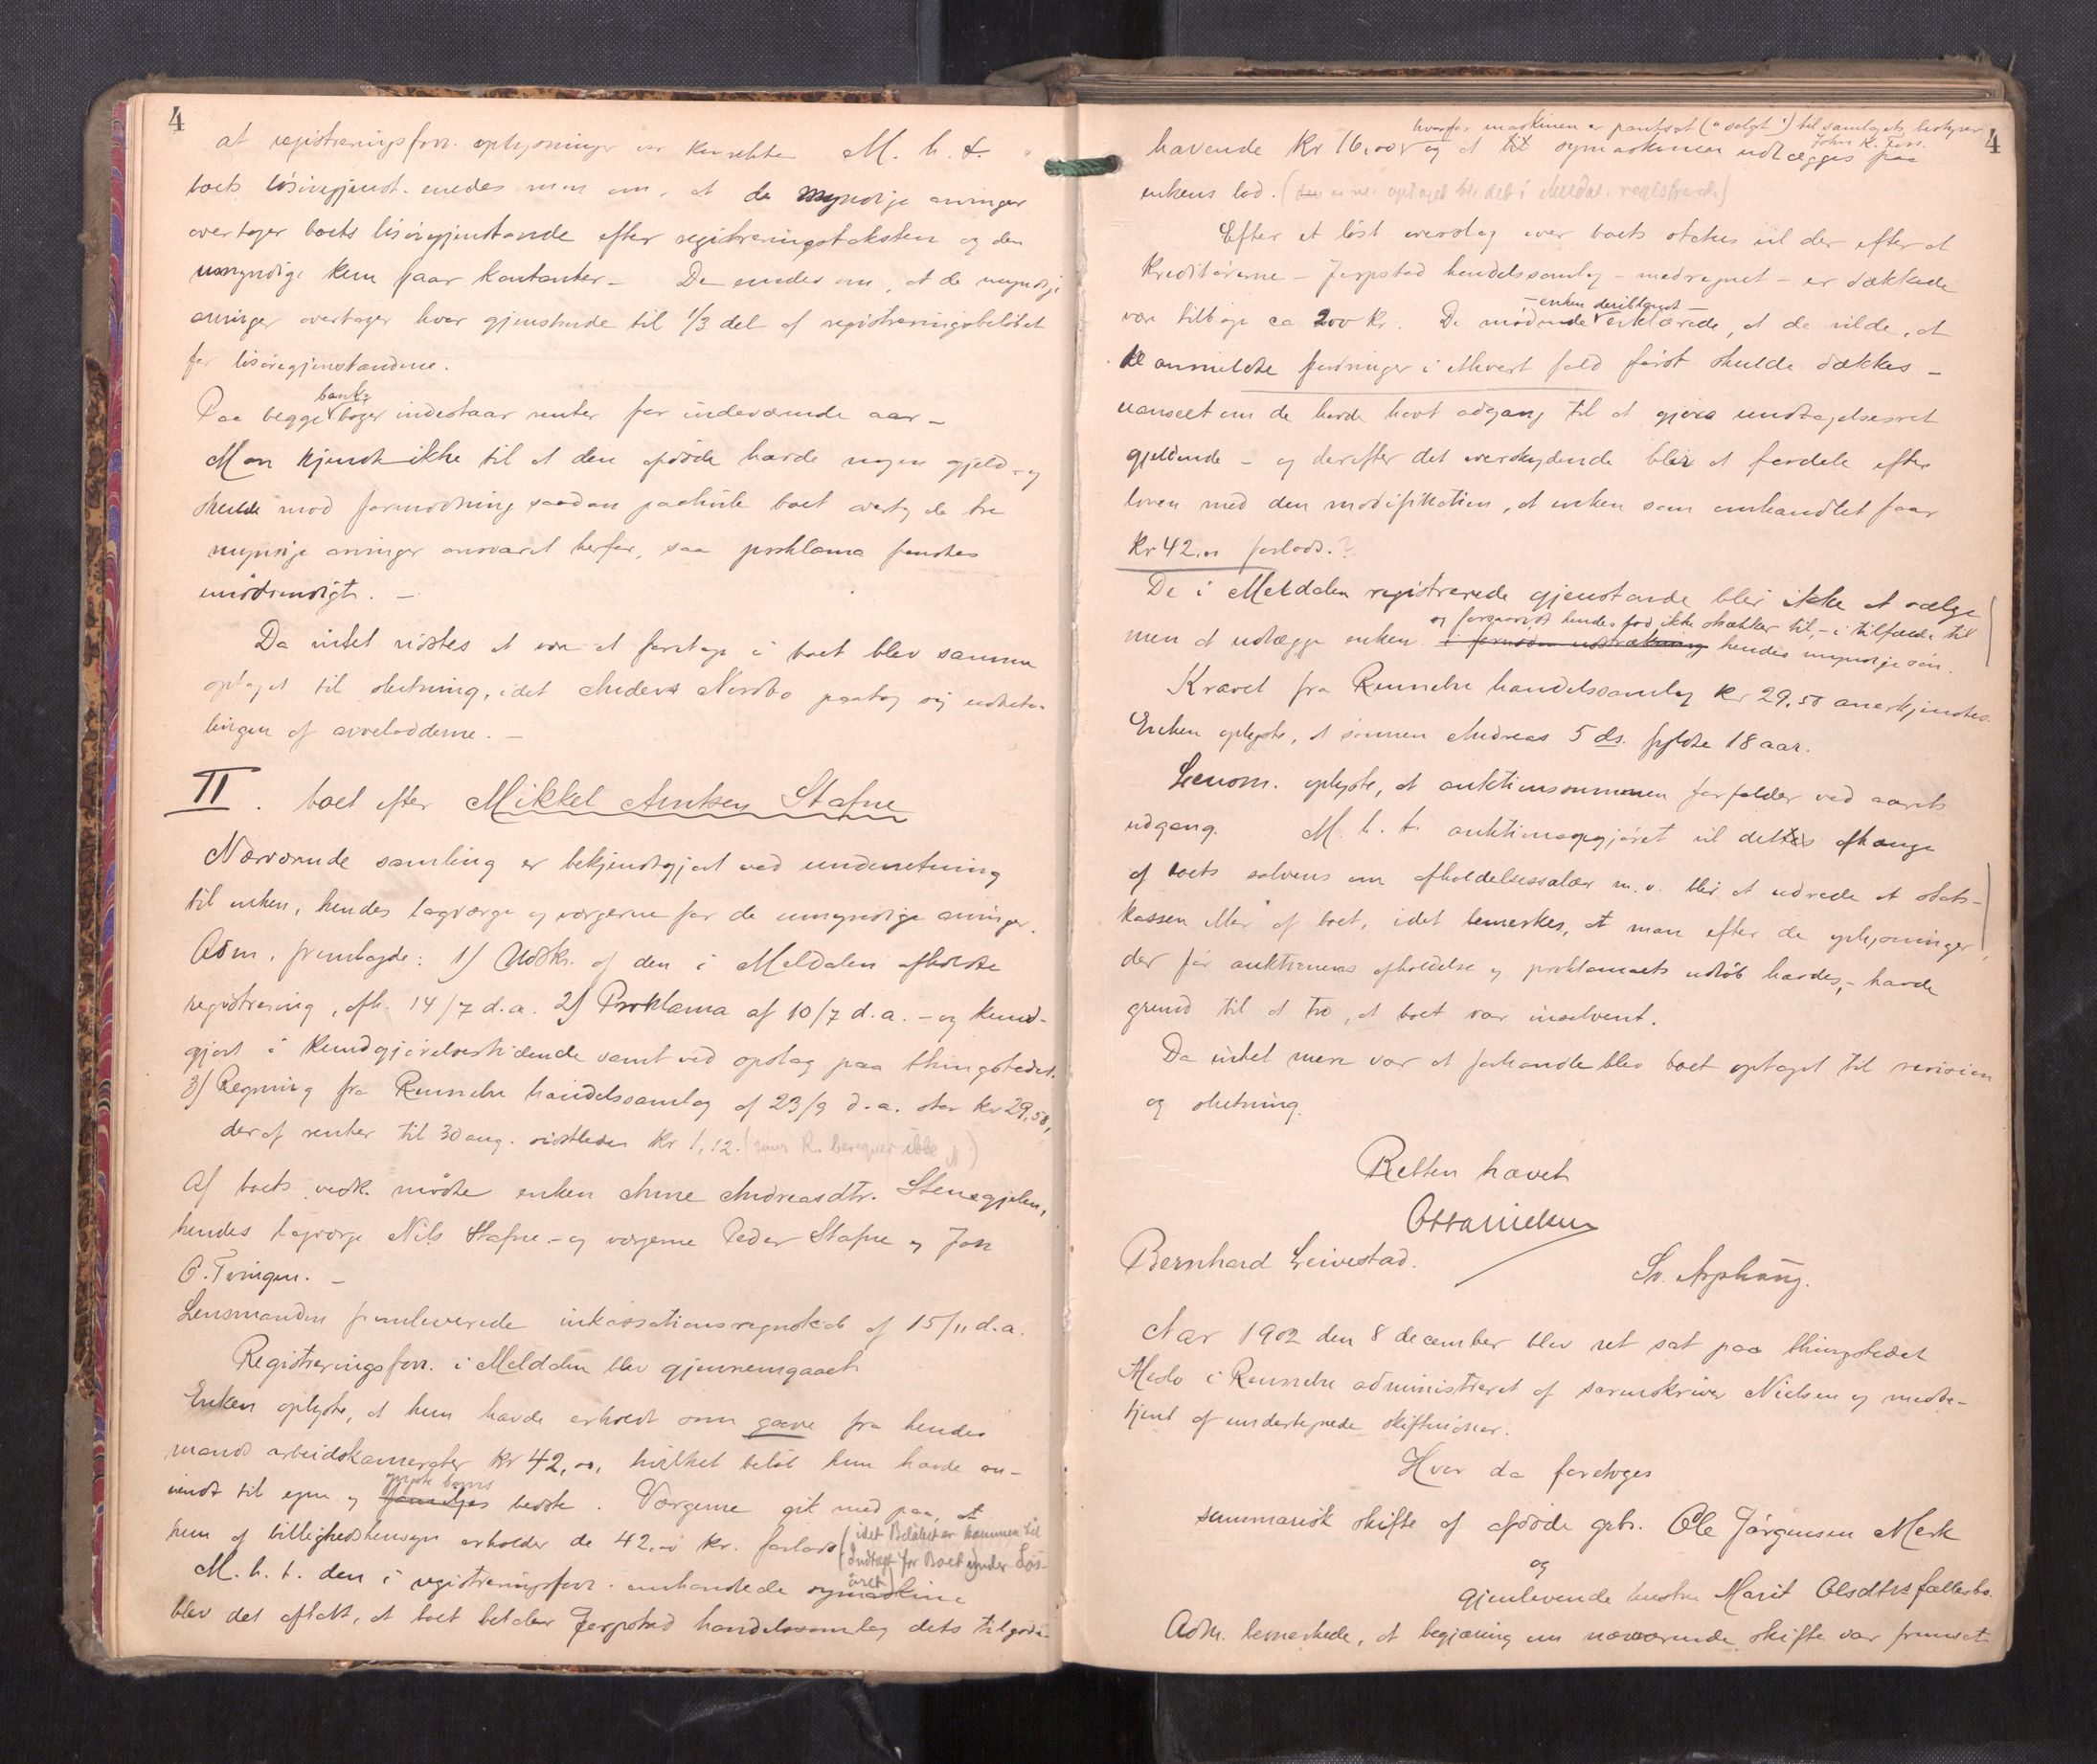 4
at registreringsforr. oplysninger var korrekte M. h. t.
boets lösöregjenst. enedes man om, at de myndige arvinger
overtager boets lösöregjenstande efter registreringstaksten og den
umyndige kun faar kontanter. De enedes om, at de myndige
arvinger overtager hver gjenstande til 1/3 del af registreringsbelöbet
for lösöregjenstandene.
Paa begge bank bøger indestaar renter for indeværende aar –
Man kjendte ikke til at den afdöde havde nogen gjeld og
skulde mod formodning saadan paahvile boet overtog de tre
myndige arvinger ansvaret herfor, saa proklama fandtes
unödvendigt. –
Da intet vidstes at være at foretage i boet blev samme
optaget til slutning, idet Anders Nordbo paatog sig udbeta-
lingen af arvelodderne. –
II. boet efter Mikkel Arntsen Stafne
Nærværende samling er bekjendtgjort ved underretning
til enken, hendes lagværge og værgerne for de umyndige arvinger.
Adm. fremlagde: 1) Udskr. af den i Meldalen afholdte
registrering, afh. 14/7 d.a. 2) Proklama af 10/7 d.a. – og kund-
gjort i Kundgjörelsestidende samt ved opslag paa thingstedet.
3) Regning fra Rennebu handelssamlag af 23/9 d.a. stor kr 29,58,
deraf renter til 30 aug. sidstleden kr 1,12. ( ikke )
Af boets vedk. mödte enken Anne Andreasdtr. Stenegjelen,
hendes lagværge Nils Stafne – og værgerne Peder Stafne og Jon
O. Tvingen. –
Lensmanden fremleverede inkassationsregnskab af 15/11 d.a.
Registreringsforr. i Meldalen blev gjennemgaaet
Enken oplyste, at hun havde erholdt som gave fra hendes
mands arbeidskamerater kr 42,00, hvilket belöb hun havde an-
vendt til egen og yngste barns familjes bedste. Værgerne gik med paa, at
hun af billighedshensyn erholder de 42,00 kr. forlods (idet Belöbet er kommen til
Indtægt for Boet under Lös-
öret)
M. h. t. den i registreringsforr. omhandlede symaskine
blev det aftalt, at boet betaler Jerpstad handelssamlag dets tilgode-
4
hvorfor maskinen er pantsat ("solgt") til samlagets bestyrer
John K. Foss.
havende kr 16,00 og at symaskinen udlægges paa
enkens lod. ( optaget i Meldal. registrerede)
Efter et löst overslag over boets status vil der efter at
kreditörerne – Jerpstad handelssamlag – medregnet – er dækkede
være tilbage ca 200 kr. De mödende – enken deriblandt – erklærede, at de vilde, at
de anmeldte fordringer i ethvert fald först skulde dækkes –
uanseet om de havde havt adgang til at gjöre undtagelsesret
gjeldende – og derefter det overskydende blir at fordele efter
loven med den modifikation, at enken som omhandlet faar
kr 42,00 forlods. ?
De i Meldalen registrerede gjenstande blir ikke at sælge
men at udlægge enken i fornøden udstrækning og forsaavidt hendes lod ikke strækker til, – i tilfælde til
hendes myndige sön.
Kravet fra Rennebu handelssamlag kr 29,58 anerkjendtes.
Enken oplyste, at sönnen Andreas 5 ds. fyldte 18 aar.
Lensm. oplyste, at auktionssummen forfalder ved aarets
udgang. M. h. t. auktionsopgjöret vil dettes afhænge
af boets solvens om afholdelsessalær m. v. blir at udrede at stats-
kassen eller af boet, idet bemerkes, at man efter de oplysninger,
der för auktionens afholdelse og proklamaets udlöb havdes, – havde
grund til at tro, at boet var insolvent.
Da intet mere var at forhandle blev boet optaget til revision
og slutning.
Retten hævet
Otto Nielsen
Bernhard Leivestad. Sv. Asphaug.
Aar 1902 den 8 december blev ret sat paa thingstedet
Meslo i Rennebu administreret af sorenskriver Nielsen og medbe-
tjent af undertegnede skiftevidner.
Hvor da foretoges
summarisk skifte af afdöde gbr. Ole Jörgensen Merk
og
gjenlevende hustru Marit Olsdtrs fællesbo.
Adm. bemerkede, at begjæring om nærværende skifte var fremsat